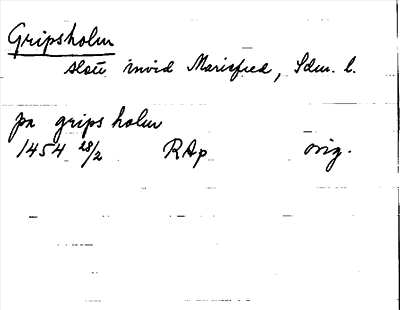 Gripsholm
slott invid Mariefred, Sdm. l.
pa grips holm
1454 28/2 RAp orig.